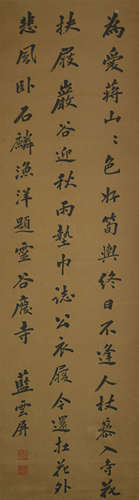 為愛蔣山々色好筍輿終日不逢人杖藜入寺花
扶屐巖谷迎秋雨墊巾誌公衣履今還在花外
悲風臥石麟漁洋題靈谷廢寺
藍雲屏